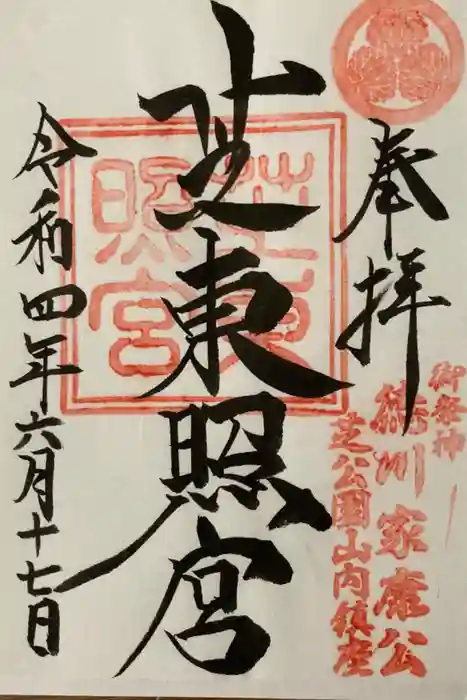 奉拝
御祭神
徳川家康公
芝公園山内鎮座
芝東照宮
芝東照宮
令和四年六月十七日